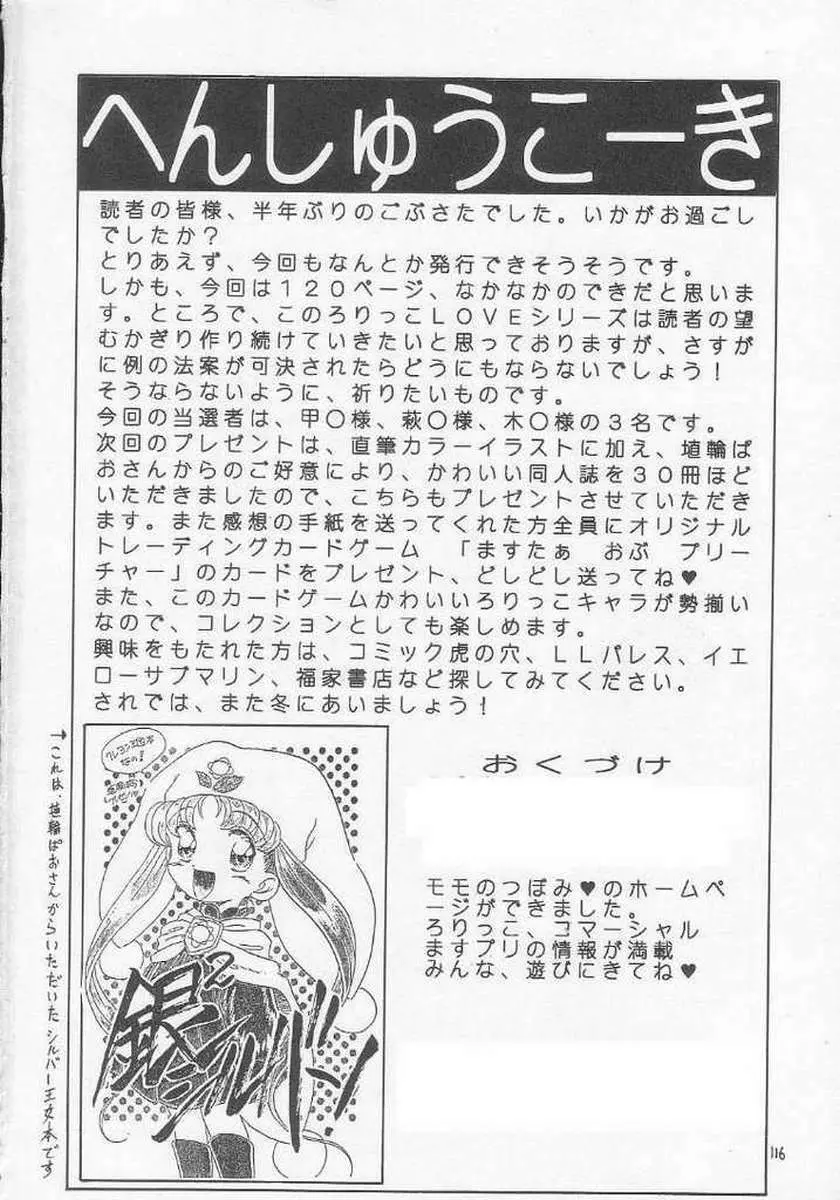 へんしゅうこーき
読者の皆様、半年ぶりのごぶさたでした。いかがお過ごし
でしたか？
とりあえず、今回もなんとか発行できそうそうです。
しかも、今回は１２０ページ、なかなかのできだと思いま
す。ところで、このろりっこＬＯＶＥシリーズは読者の望
むかぎり作り続けていきたいと思っておりますが、さすが
に例の法案が可決されたらどうにもならないでしょう！
そうならないように、祈りたいものです。
今回の当選者は、甲〇様、萩〇様、木〇様の３名です。
次回のプレゼントは、直筆カラーイラストに加え、埴輪ぱ
おさんからのご好意により、かわいい同人誌を３０冊ほど
いただきましたので、こちらもプレゼントさせていただき
ます。また感想の手紙を送ってくれた方全員にオリジナル
トレーディングカードゲーム　「ますたぁ　おぶ　プリー
チャー」のカードをプレゼント、どしどし送ってね♥
また、このカードゲームかわいいろりっこキャラが勢揃い
なので、コレクションとしても楽しめます。
興味をもたれた方は、コミック虎の穴、ＬＬパレス、イエ
ローサブマリン、福家書店など探してみてください。
されでは、また冬にあいましょう！
おくづけ
モモのつぼみ♥のホームペ
ージができました。
ろりっこ、コマーシャル
ますプリの情報が満載
みんな、遊びにきてね♥
銀²
シルバー
→これは、埴輪ぱおさんからいただいたシルバー王女本です
116